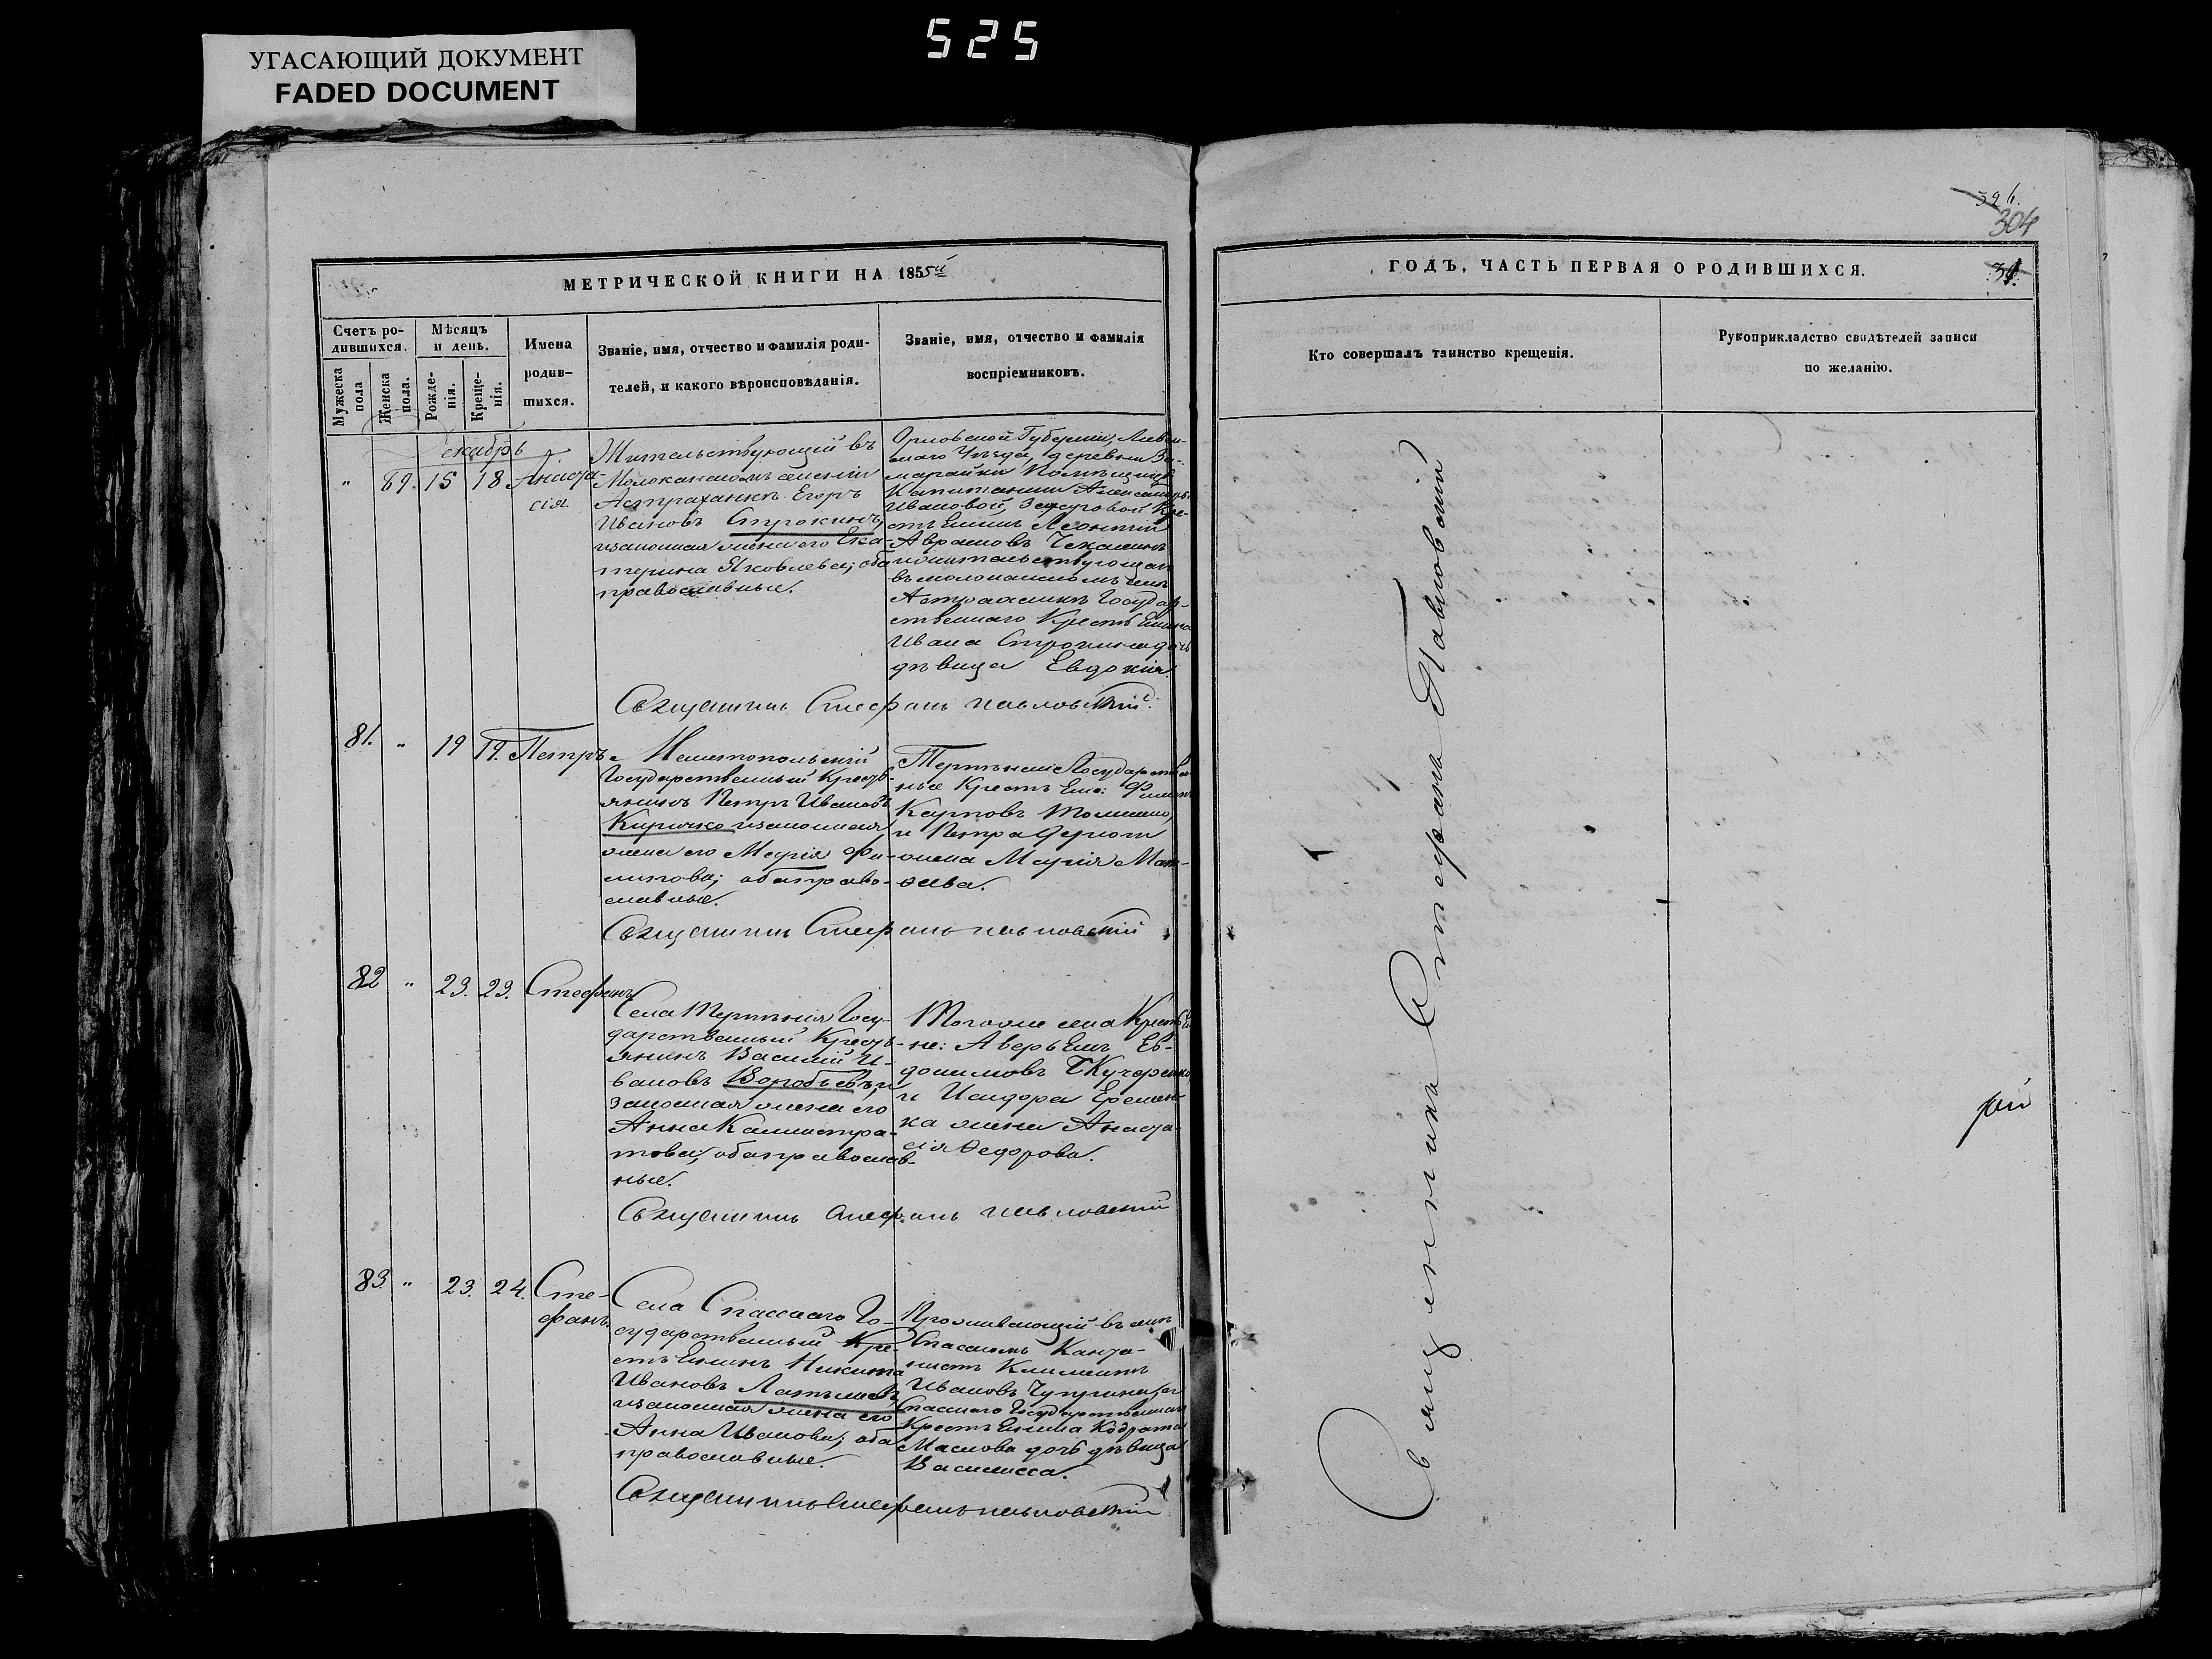 525
УГАСАЮЩИЙ ДОКУМЕНТ
FADED DOCUMENT
МЕТРИЧЕСКОЙ КНИГИ НА 1855й
Счетъ ро-
дившихся.
Мужеска пола
Женска пола.
Мѣсяцъ
и день.
Рожде-
нія.
Креще-
нія.
Имена
родив-
шихся.
Званіе, имя, отчество и фамилія роди-
телей, и какого вѣроисповѣданія.
Званіе, имя, отчество и фамилія
воспріемниковъ.
Декабрь
" 89. 15 18 Анаста-
сія.
Жительствующій въ
Молоканскомъ селеніи
Астраханкѣ Егоръ
Ивановъ Строкинъ,
и законная жена его Ека-
терина Яковлева; оба
православные.
Орловской Губерніи, Ливен-
скаго Уѣзда, деревни
Помѣщицы
Капитанши
Ивановой, Кре-
стьянинъ Леонтій
Аврамовъ Чекалинъ
и жительствующая
въ молоканскомъ селѣ
Астраханкѣ Государ-
ственнаго Крестьянина
Ивана Строкина дочь
дѣвица Евдокія.
Священникъ Стефанъ Павловскій.
81. " 19 19. Петръ
Мелитопольскій
Государственный Кресть-
янинъ Петръ Ивановъ
Киричко и законная
жена его Марія Фи-
липова; оба право-
славные.
Терпѣнія Государствен-
ные Крестьяне: Филипъ
Карповъ
и Петра
жена Марія Мат-
ѳеева.
Священникъ Стефанъ Павловскій
82 " 23. 23. Стефанъ
Села Терпѣнія Госу-
дарственный Кресть-
янинъ Василій И-
вановъ Воробьевъ, и
законная жена его
Анна Калистра-
това; оба православ-
ные.
Тогоже села Крестья-
не: Аверьянъ Ев-
докимовъ Кучеренко
и Исидора Еремен-
ка жена Анаста-
сія Ѳедорова.
Священникъ Стефанъ Павловскій
83. " 23. 24. Сте-
фанъ.
Села Спасскаго Го-
сударственный Кре-
стьянинъ Никита
Ивановъ Латышевъ,
и законная жена его
Анна Иванова; оба
православные.
Проживающій въ селѣ
Спасскомъ Канто-
нистъ Климентъ
Ивановъ Чуприна, и
Спасскаго Государственнаго
Крестьянина Кодрата
Маслова дочь дѣвица
Василисса.
Священникъ Стефанъ Павловскій
326.
304
ГОДЪ, ЧАСТЬ ПЕРВАЯ О РОДИВШИХСЯ.
31.
Кто совершалъ таинство крещенія.
Рукоприкладство свидѣтелей записи
по желанію.
Священникъ Стефанъ Павловскій